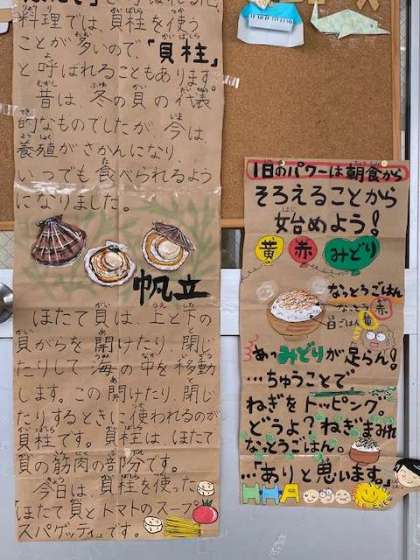 料理では貝柱を使う
ことが多いので、「貝柱」
と呼ばれることもあります。
昔は冬の貝の代表
的なものでしたが、今は
養殖がさかんになり、
いつでも食べられるよう
になりました。
帆立
ほたて貝は、上と下の
貝がらを開けたり、閉じ
たりして海の中を移動
します。この開けたり、閉じ
たりするときに使われるのが
貝柱です。貝柱は、ほたて
貝の筋肉の部分です。
今日は、貝柱を使った
ほたて貝とトマトのスープ
スパゲッティです。
1日のパワーは朝食から
そろえることから
始めよう!
黄 赤 みどり
なっとうごはん
白ごはん 赤
あっみどりが足らん!
…ちゅうことで
ねぎをトッピング。
どうよ?ねぎまみれ
なっとうごはん。
…「ありと思います。」